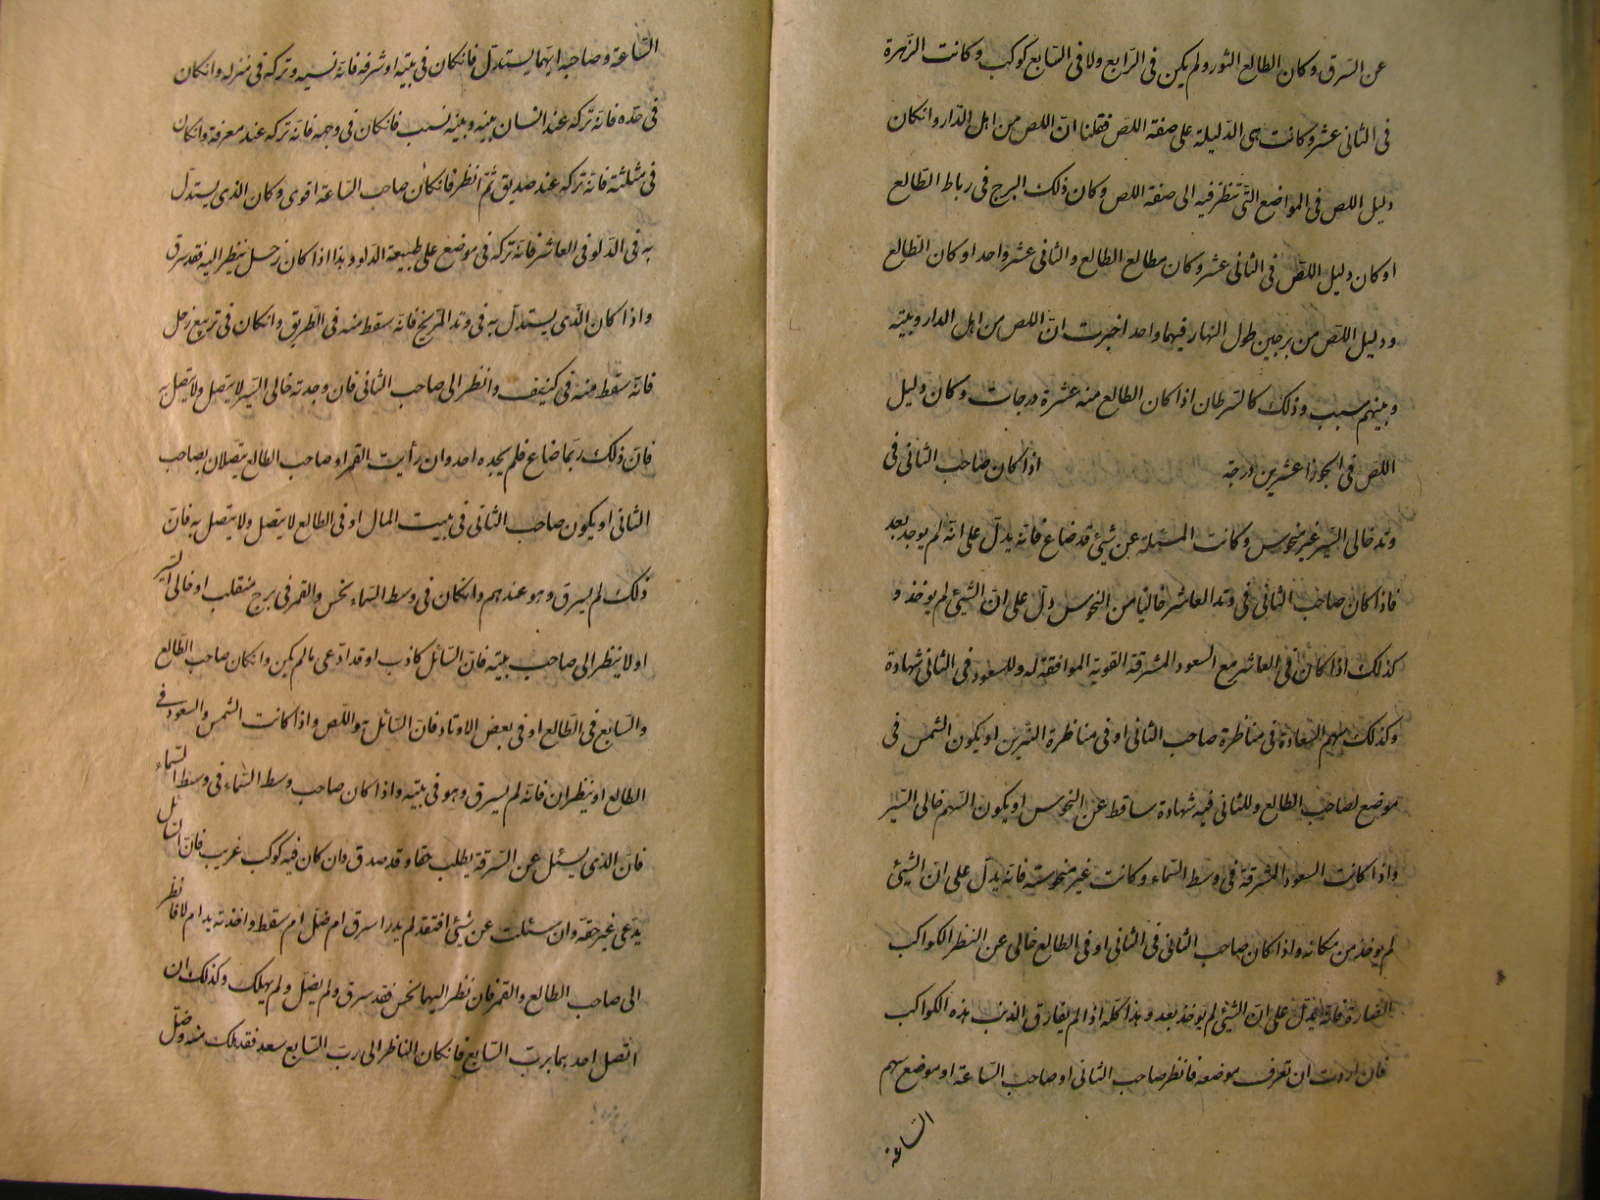 عن السرق وكان الطالع الثور ولم يكن فى الرابع ولا فى السابع كوكب وكانت الزهرة
فى الثانى عشر وكانت هى الدليلة على صفة اللص فقلنا ان اللص من اهل الدار وانكان
دليل اللص فى المواضع التى تنظر فيه الى صفة اللص وكان ذلك البرج فى رباط الطالع
او كان دليل اللص فى الثانى عشر وكان مطالع الطالع والثانى عشر واحد او كان الطالع
ودليل اللص من برجين طول النهار فيهما واحد اخبرت ان اللص من اهل الدار وبينه
وبينهم سبب وذلك كالسرطان اذا كان الطالع منه عشرة درجات وكان دليل
اللص فى الجوزا عشرين درجة اذا كان صاحب الثانى فى
وتد خالى السير غير منحوس وكانت المسئلة عن شئ قد ضاع فانه يدل على انه لم يوجد بعد
فاذا كان صاحب الثانى فى وتد العاشر خاليا من النحوس دل على ان الشئ لم يوخذ و
كذلك اذا كان فى العاشر مع السعود المشرقة القوية الموافقة له وللسعود فى الثانى شهادة
وكذلك سهم السعادة فى مناظرة صاحب الثانى او فى مناظرة النيرين او يكون الشمس فى
موضع لصاحب الطالع وللثانى فيه شهادة ساقط عن النحوس او يكون السهم خالى السير
واذا كانت السعود المشرقة فى وسط السماء وكانت غير منحوسة فانه يدل على ان الشئ
لم يوخذ من مكانه واذا كان صاحب الثانى فى الثانى او فى الطالع خالى عن النظر الكواكب
الضارة فانه يدل على ان الشئ لم يوخذ بعد وهذا كله اذا لم يفارق الذنب هذه الكواكب
فان اردت ان تعرف موضعه فانظر صاحب الثانى او صاحب الساعة او موضع سهم
الساعة
الساعة وصاحبه ايهما يستدل فانكان فى بيته او شرفه فانه نسيه وتركه فى منزله وانكان
فى حده فانه تركه عند انسان بينه وبينه نسب فانكان فى وجهه فانه تركه عند معرفة وانكان
فى مثلثته فانه تركه عند صديق ثم انظر فانكان صاحب الساعة اقوى وكان الذى يستدل
به فى الدلو فى العاشر فانه تركه فى موضع على طبيعة الدلو وهذا اذا كان زحل ينظر اليه فقد سرق
واذا كان الذى يستدل به فى وتد المريخ فانه سقط منه فى الطريق وانكان فى تربيع زحل
فانه سقط منه فى كنيف وانظر الى صاحب الثانى فان وجدته خالى السير لا يتصل ولا يتصل به
فان ذلك ربما ضاع فلم يجده احد وان رأيت القمر او صاحب الطالع يتصلان بصاحب
الثانى او يكون صاحب الثانى فى بيت المال او فى الطالع لا يتصل ولا يتصل به فان
ذلك لم يسرق وهو عندهم وانكان فى وسط السماء نحس والقمر فى برج منقلب او خالى السير
او لا ينظر الى صاحب بيته فان السائل كاذب او قد ادعى ما لم يكن وانكان صاحب الطالع
والسابع فى الطالع او فى بعض الاوتاد فان السائل هو اللص واذا كانت الشمس والسعود فى
الطالع او ينظران فانه لم يسرق وهو فى بيته واذا كان صاحب وسط السماء فى وسط السماء
فان الذى يسئل عن السرقة يطلب حقا وقد صدق وان كان فيه كوكب غريب فان السائل
يدعى غير حقه وان سئلت عن شئ افتقد لم يدر اسرق ام ضل ام سقط واخذته يد ام لا فانظر
الى صاحب الطالع والقمر فان نظر اليهما نحس فقد سرق ولم يضل ولم يهلك وكذلك ان
اتصل احدهما برب السابع فانكان الناظر الى رب السابع سعد فقد هلك منه وضل